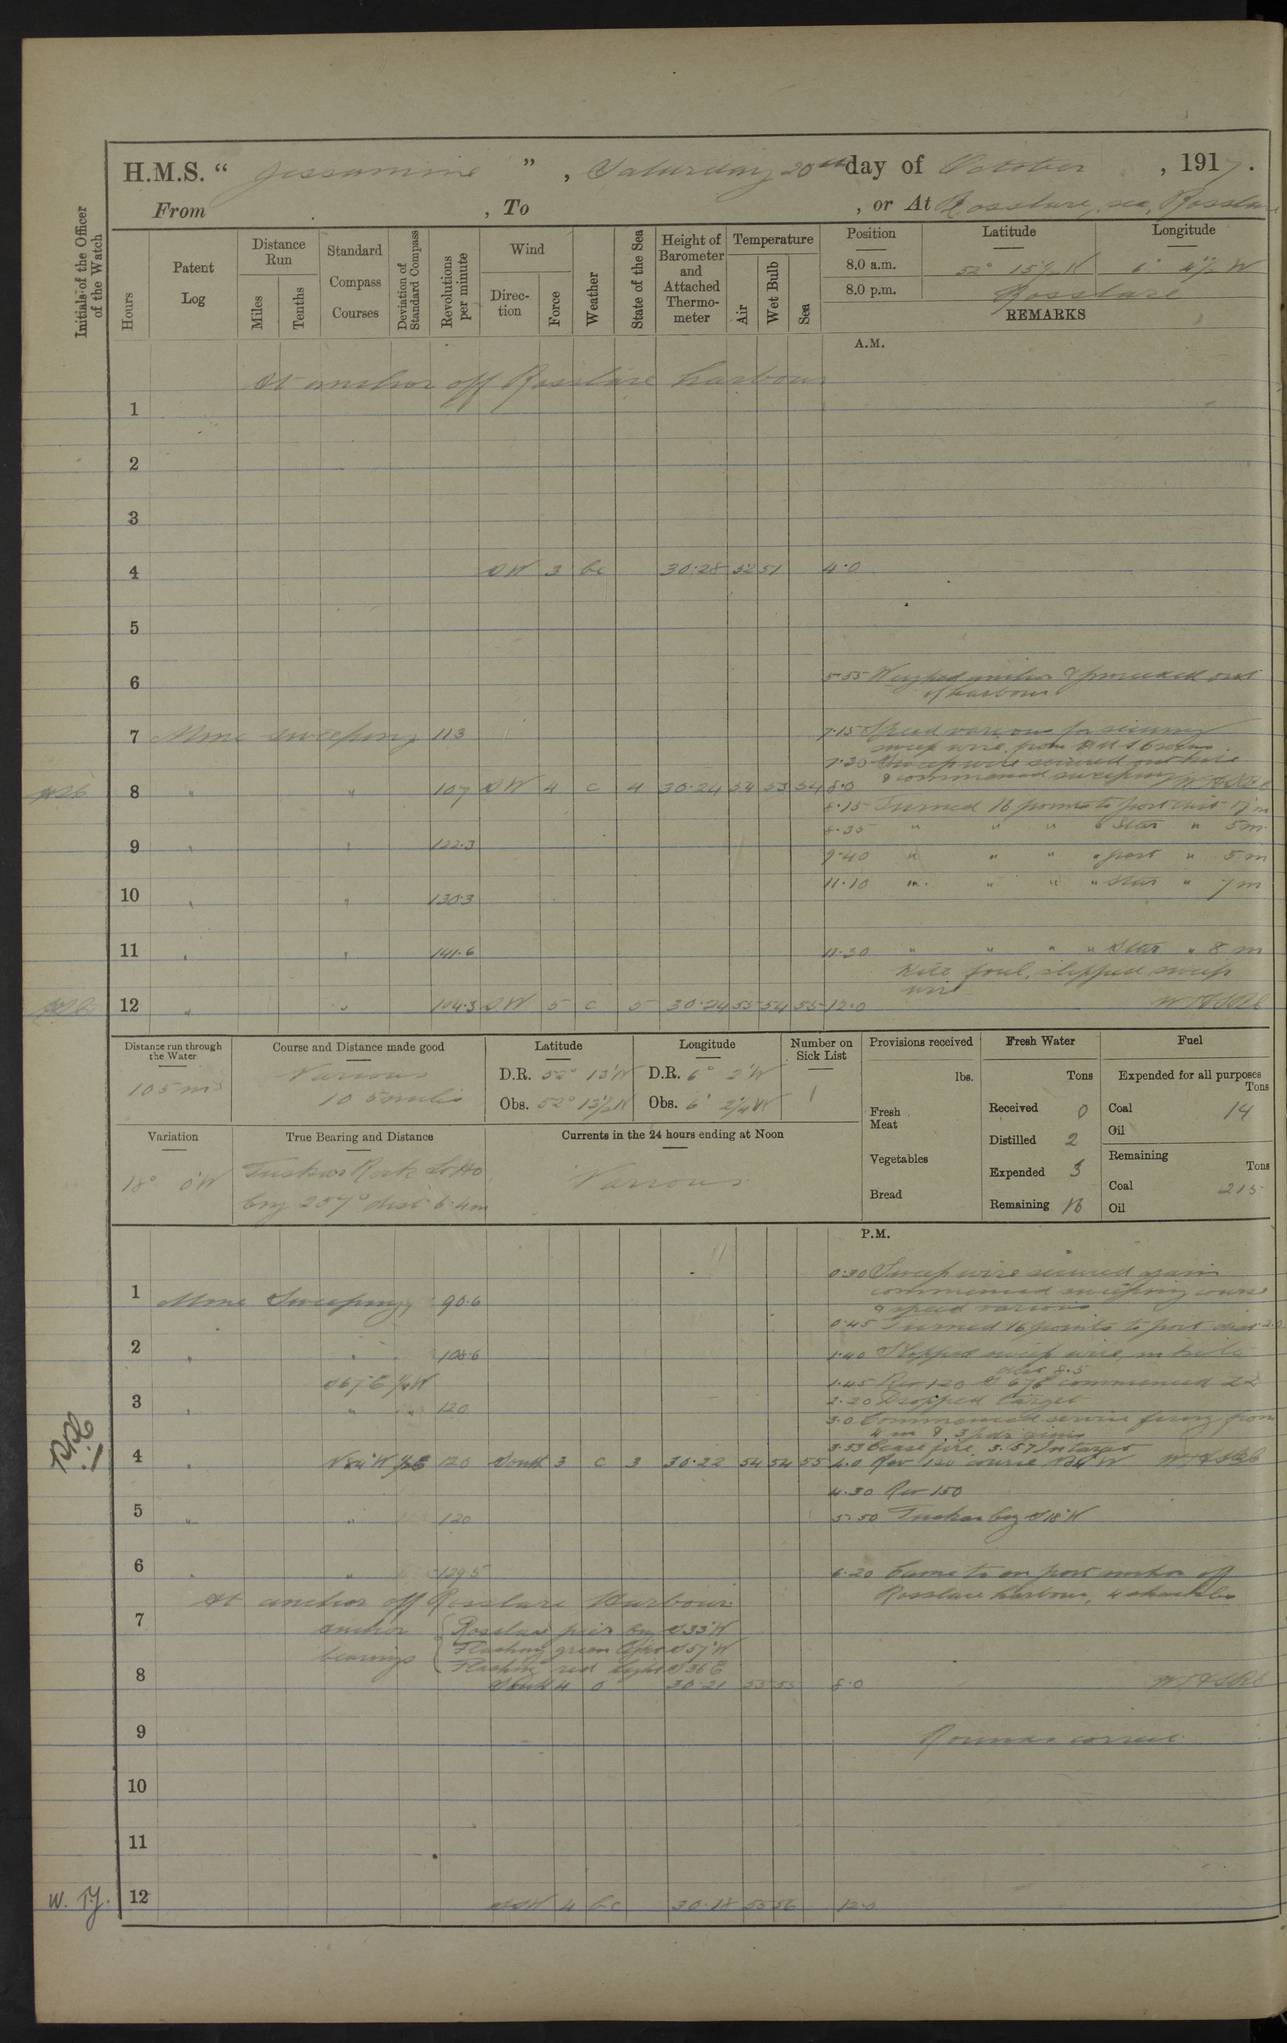 H.M.S. “ Jessamine ”, Saturday 20th day of October, 1917.
From , To , or At Rosslare, sea, Rosslare
Initials of the Officer of the Watch
Hours
Patent Log
Distance Run
Miles
Tenths
Standard Compass Courses
Deviation of Standard Compass
Revolutions per minute
Wind
Direction
Force
Weather
State of the Sea
Height of Barometer and Attached Thermometer
Temperature
Air
Wet Bulb
Sea
Position Latitude Longitude
8.0 a.m. 52° 15½ N 6° W
8.0 p.m. Rosslare
REMARKS
A.M.
At anchor off Rosslare harbour
1
2
3
4 SW 3 bc 30.28 52 51 4.0
5
6 5.55 Weighed anchor & proceeded out
of harbour
7 Mine sweeping 113 7.15 Speed various for securing
sweep wire
7.20 Sweep wire secured
& commenced sweeping
8 " " 107 SW 4 c 4 30.24 54 53 54 8.0
8.15 Turned 16 points to port dist
8.35 " " " " Star " 5 m
9 " " 122.3
9.40 " " " " port " 5 m
10 " " 130.3 11.10 " " " " Star " 7 m
11 " " 141.6 11.30 " " " " Star " 8 m
Kite foul, slipped sweep
wire
12 " " 104.3 SW 5 c 5 30.24 55 54 55 12.0
Distance run through the Water
105 ms
Course and Distance made good
Various
105 miles
Latitude
D.R. 52° 13' N
Obs. 52° 13½ N
Longitude
D.R. 6° 2' W
Obs. 6° 2¼ W
Number on Sick List
1
Provisions received
lbs.
Fresh Meat
Vegetables
Bread
Fresh Water
Tons
Received 0
Distilled 2
Expended 3
Remaining 16
Fuel
Expended for all purposes
Tons
Coal 14
Oil
Remaining
Tons
Coal 215
Oil
Variation
18° 0' W
True Bearing and Distance
Tuskar Rock Lt Ho
brg 257° dist 6.4 m
Currents in the 24 hours ending at Noon
Various
P.M.
0.30 Sweep wire secured again
commenced sweeping course
& speed various
1 Mine Sweeping 90.6
0.45 Turned 16 points to port dist
2 " " 108.6 1.40 Slipped sweep wire, in kite
S 67 E ¼ W 1.45 Rev 120 S 67 E commenced
3 " " 120 2.20 Dropped target
3.0 Commenced service firing from
4 in & 3 pdr guns
3.53 Cease fire. 3.57 In target
4 " N 84° W 120 South 3 c 3 30.22 54 54 55 4.0 Rev 120 course N 84 W
4.30 Rev 150
5 " " 120 5.50 Tuskar brg S 18° W
6 " " 129.5 6.20 Came to on port anchor off
Rosslare harbour, 4 shackles
At anchor off Rosslare Harbour
7 anchor bearings Rosslare pier brg S 33° W
Flashing green light S 57° W
Flashing red light S 36 E
8 South 4 o 30.21 55 53 8.0
9 Rounds correct
10
11
W. T.J. 12 SSW 4 bc 30.18 55 56 12.0